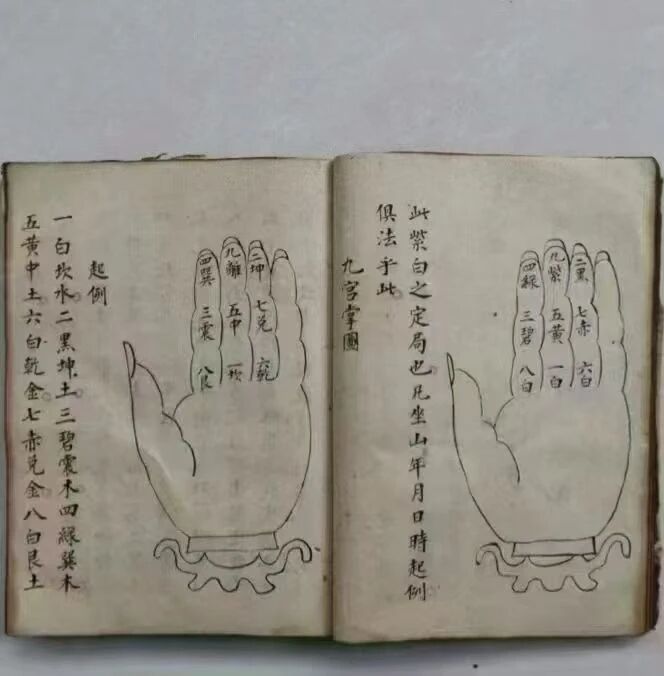 二黑
七赤
六白
九紫
五黃
一白
四綠
三碧
八白
此紫白之定局也凡坐山年月日時起例
俱法乎此
九宮掌圖
二坤
七兌
六乾
九離
五中
一坎
四巽
三震
八艮
起例
一白坎水二黑坤土三碧震木四綠巽木
五黃中土六白乾金七赤兌金八白艮土